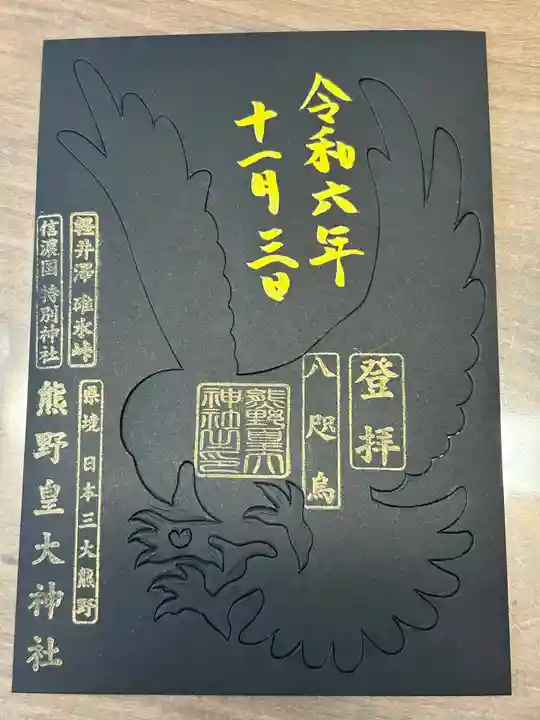 令和六年
十一月三日
登拝
八咫烏
熊野皇大神社之印
軽井澤 碓氷峠
信濃國 特別神社
県境 日本三大熊野
熊野皇大神社